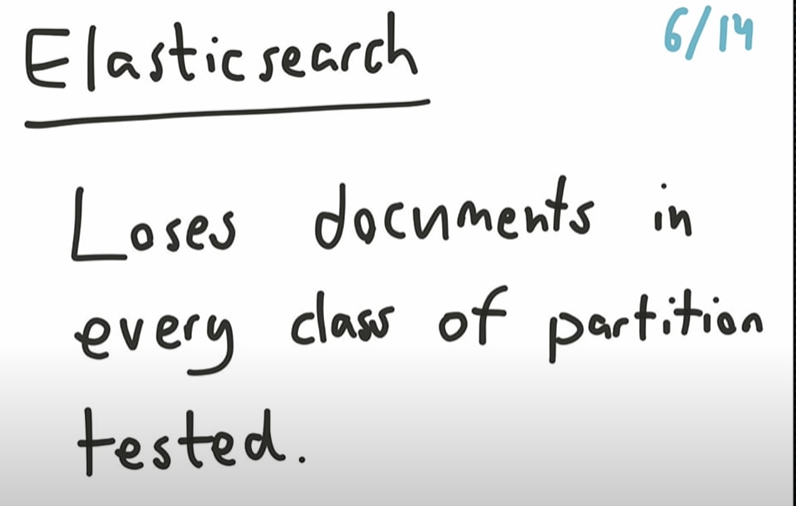 Elasticsearch
6/14
Loses documents in
every class of partition
tested.